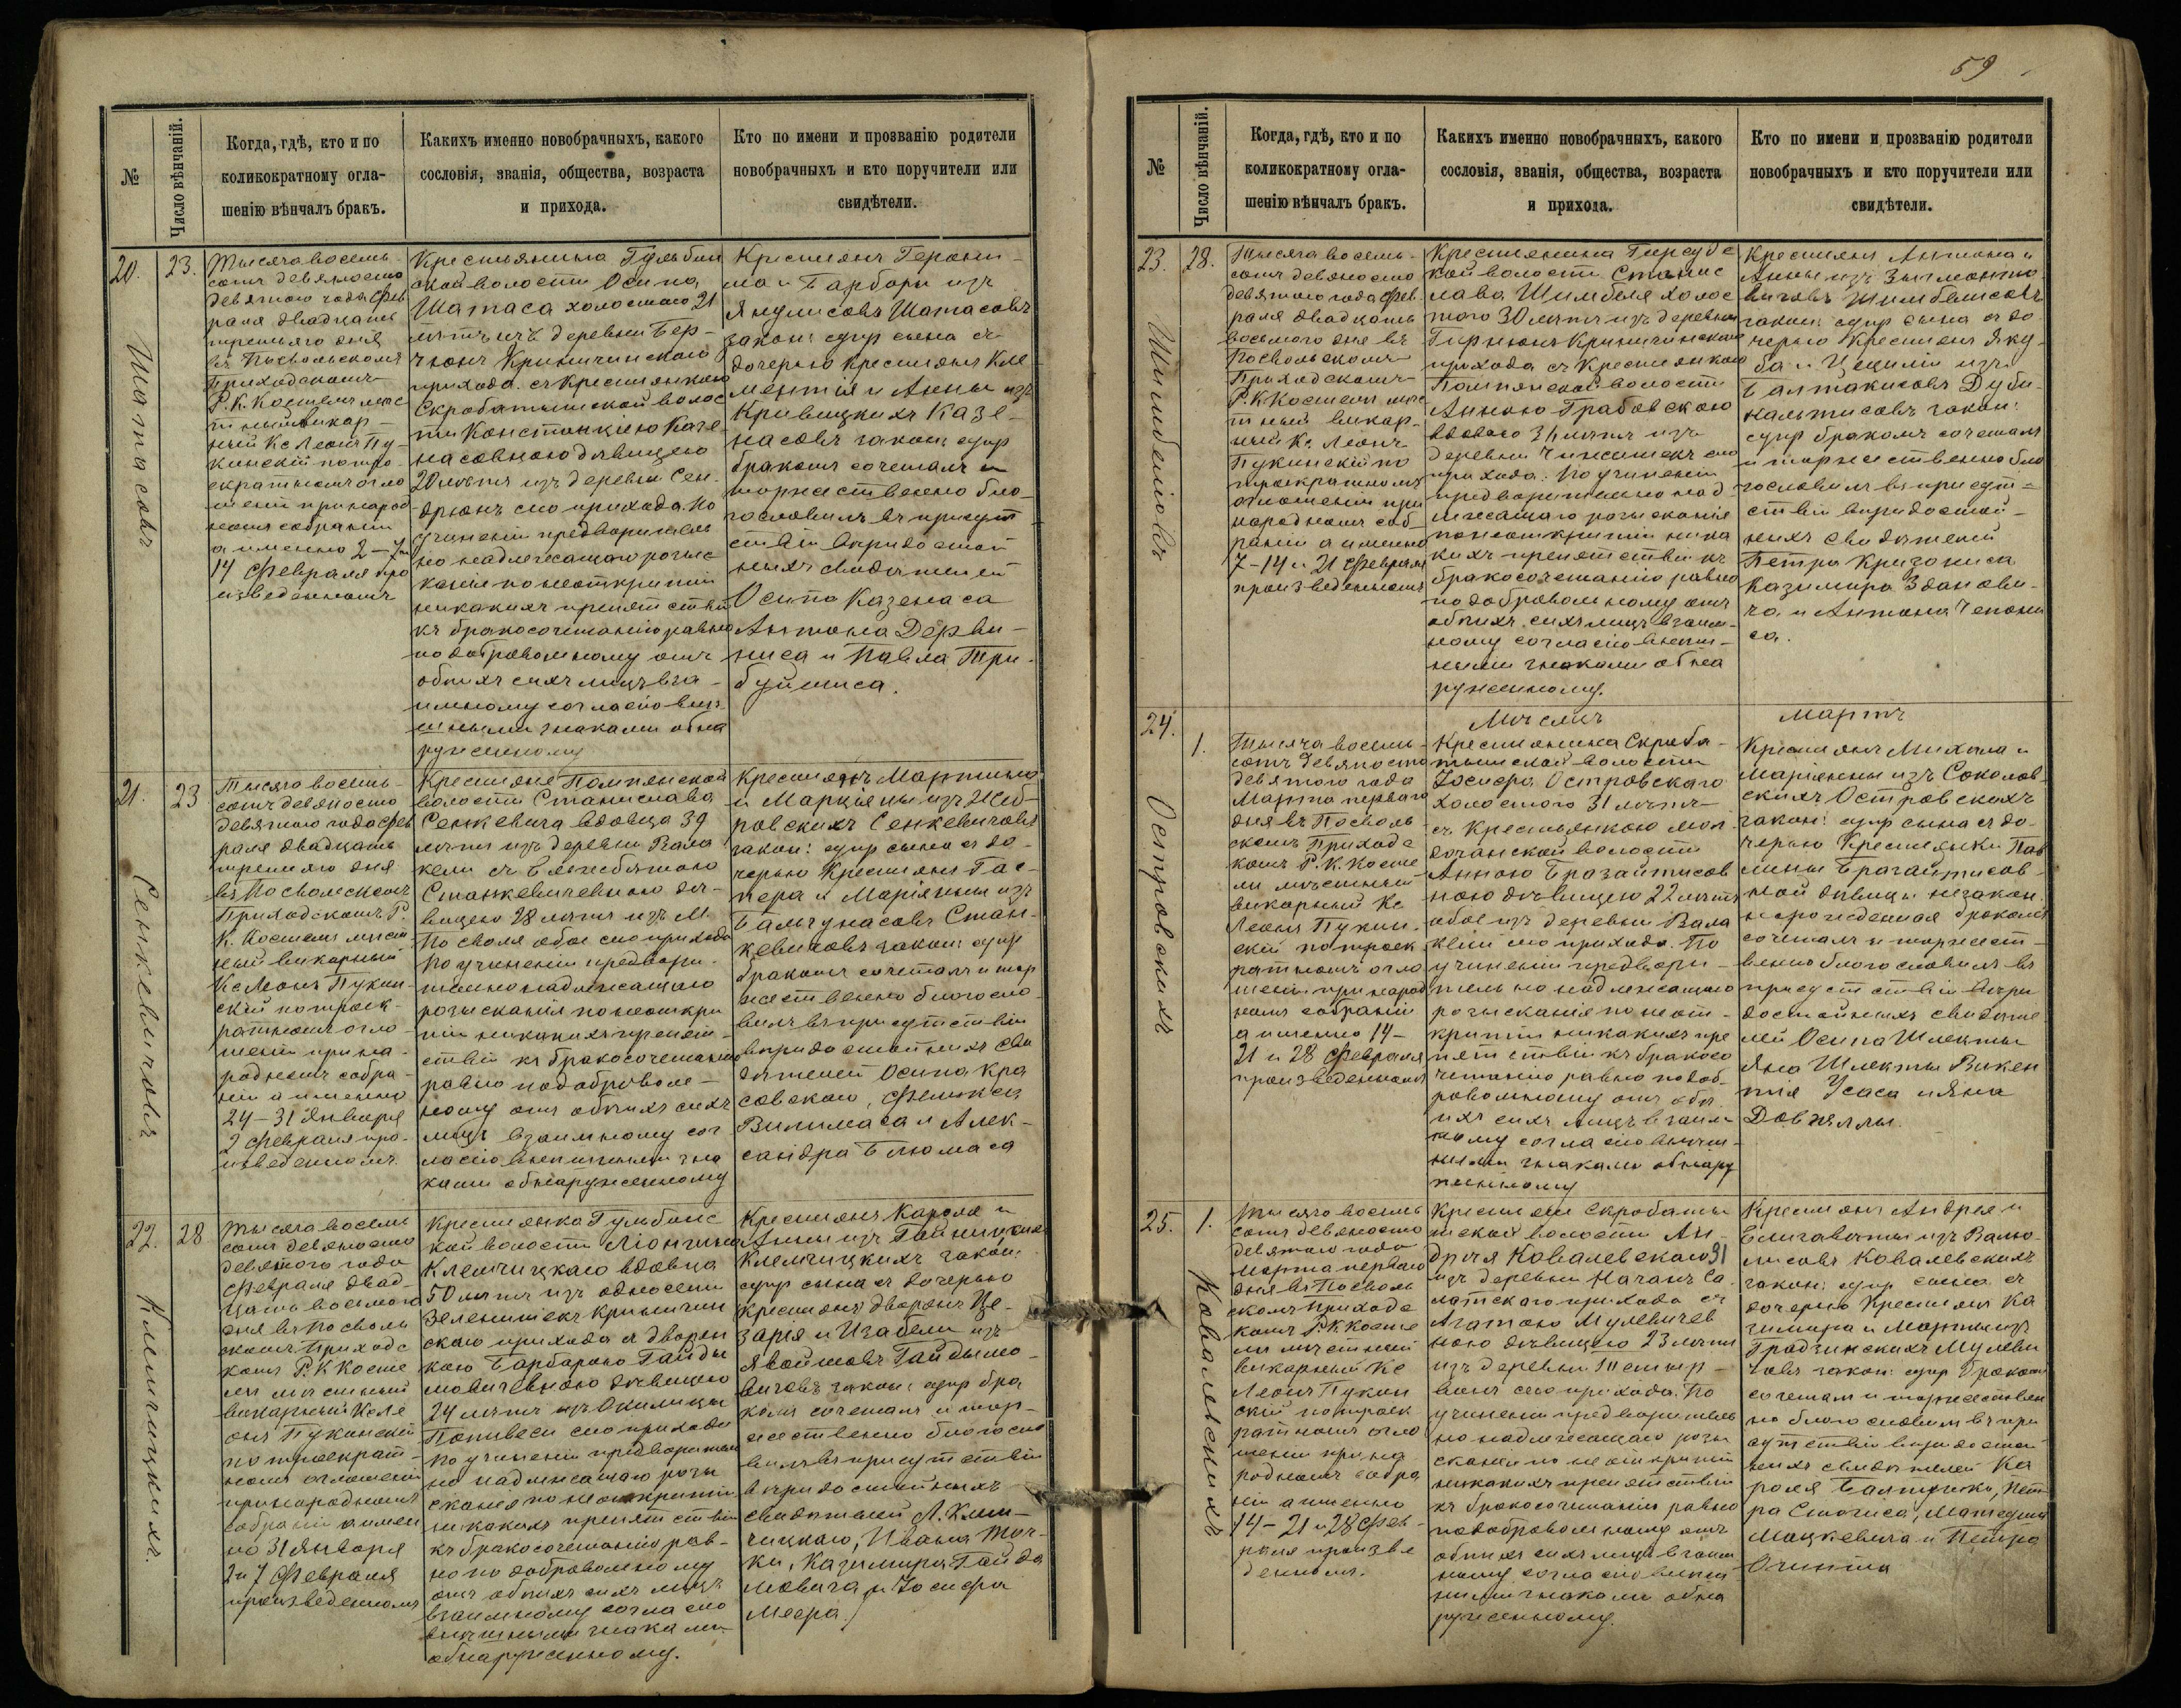 59
№
Число вѣнчаній.
Когда, гдѣ, кто и по
коликократному огла-
шенію вѣнчалъ бракъ.
Какихъ именно новобрачныхъ, какого
сословія, званія, общества, возраста
и прихода.
Кто по имени и прозванію родители
новобрачныхъ и кто поручители или
свидѣтели.
20.
23.
Шатасовъ
Тысяча восемь-
сотъ девяносто
девятаго года Фев
раля двадцать
третьяго дня
въ Посвольскомъ
Приходскомъ
Р. К. Костелѣ мѣс
тный викар-
ный Кс Леонъ Пу-
кинскій по тро-
екратномъ огло
шеніи при народ
номъ собраніи
а именно 2-7 и
14 Февраля про
изведенномъ
Крестьянина Гульбин
ской волости Осипа
Шатаса холостаго 21
лѣтъ изъ деревни Бер-
чюнъ Криничинскаго
прихода съ Крестьянкою
Скробатышской волос
ти Констанціею Казе
насовною дѣвицею
20 лѣтъ изъ деревни Сен-
дрюнъ сего прихода. По
учиненіи предваритель
но надлежащаго розыс
канія по неоткрытіи
никакихъ препятствій
къ бракосочетанію равно
по добровольному отъ
обѣихъ сихъ лицъ вза-
имному согласію внѣ
шными знаками обна
руженному
Крестьянъ Герони-
ма и Барбары изъ
Янулисовъ Шатасовъ
закон: супр сына съ
дочерью крестьянъ Кле
ментія и Анны изъ
Кривицкихъ Казе-
насовъ закон: супр
бракомъ сочеталъ и
торжественно бла-
гословилъ въ присут
ствіи вѣридостой
ныхъ свидѣтелей
Осипа Казенаса
Антона Дерви-
ниса и Павла Три-
буйшиса.
21.
23
Сенкевичовъ
Тысяча восемь-
сотъ девяносто
девятаго года Фев
раля двадцать
третьяго дня
въ Посвольскомъ
Приходскомъ Р.
К. Костелѣ мѣст
ный викарный
Кс Леонъ Пукин-
скій по троек-
ратномъ огло-
шеніи при на-
родномъ собра-
ніи а именно
24-31 Января
2 Февраля про-
изведенномъ
Крестьяне Помпянской
волости Станислава
Сенкевича вдовца 39
лѣтъ изъ деревни Вала
кели съ Елисаветою
Станкевичевною дѣ-
вицею 28 лѣтъ изъ М.
Посволя обое сего прихода
По учиненіи предвари-
тельно надлежащаго
розысканія по неоткры
тіи никакихъ препят-
ствій къ бракосочетанію
равно по доброволь-
ному отъ обѣихъ сихъ
лицъ взаимному сог
ласію внѣшними зна
ками обнаруженному
Крестьянъ Мартина
и Марціяны изъ Жеб-
ровскихъ Сенкевичовъ
закон: супр сына съ до-
черью Крестьянъ Гас-
пера и Маріянны изъ
Балчунасовъ Стан-
кевичовъ закон: супр
бракомъ сочеталъ и тор
жественно благосло-
вилъ въ присутствіи
вѣридостойныхъ сви
дѣтелей Осипа Кра
совскаго, Феликса
Вилимаса и Алек-
сандра Блюмаса
22.
28
Климчицкихъ.
Тысяча восемь
сотъ девяносто
девятаго года
Февраля двад-
цать восьмаго
дня въ Посволь
скомъ Приходс
комъ Р. К. Косте
лѣ мѣстный
викарный Кс Ле
онъ Пукинскій
по троекрат-
номъ оглошеніи
при народномъ
собраніи а имен
но 31 Января
2 и 7 Февраля
произведенномъ
Крестьянка Гульбинс
кой волости Ліонгина
Клемчицкаго вдовца
50 лѣтъ изъ односели
Зеленишекъ Криничин
скаго прихода съ дворян
кою Барбарою Гайды
мовичевною дѣвицею
24 лѣтъ изъ Околицы
Попивеси сего прихода
По учиненіи предваритель
но надлежащаго розы
сканія по неоткрытіи
никакихъ препятствій
къ бракосочетанію рав-
но по добровольному
отъ обѣихъ сихъ лицъ
взаимному согласію
внѣшними знаками
обнаруженному.
Крестьянъ Кароля и
Анны изъ
Клемчицкихъ закон:
супр сына съ дочерью
крестьянъ дворянъ Це-
зарія и Изабели изъ
Явойшовъ Гайдымо-
вичовъ закон: супр бра
комъ сочеталъ и тор-
жественно благосло
вилъ въ присутствіи
вѣридостойныхъ
свидѣтелей Л. Клим-
чицкаго, Ивана Точ-
ки, Казимира Гайды
мовича и Іосифа
Меера.
№
Число вѣнчаній.
Когда, гдѣ, кто и по
коликократному огла-
шенію вѣнчалъ бракъ.
Какихъ именно новобрачныхъ, какого
сословія, званія, общества, возраста
и прихода.
Кто по имени и прозванію родители
новобрачныхъ и кто поручители или
свидѣтели.
23.
28.
Шимбелисовъ
Тысяча восемь-
сотъ девяносто
девятаго года Фев-
раля двадцать
восьмаго дня въ
Посвольскомъ
Приходскомъ
Р. К Костелѣ мѣс
тный викар-
ный Кс Леонъ
Пукинскій по
троикратномъ
оглошеніи при
народномъ соб-
раніи а именно
7-14 и 21 Февраля
произведенномъ
Крестьянина Гирсудс
кой волости Станис
лава Шимбеля холос
таго 30 лѣтъ изъ деревни
Гирнюнъ Криничинскаго
прихода съ Крестьянкою
Помпянской волости
Анною Грабовскою
вдовою 34 лѣтъ изъ
деревни Чинишекъ сего
прихода. По учиненіи
предварительно над-
лежащаго розысканія
по неоткрытіи ника
кихъ препятствій къ
бракосочетанію равно
по добровольному отъ
обѣихъ сихъ лицъ взаим-
ному согласію внѣш-
ними знаками обна
руженному.
Крестьянъ Антона и
Анны изъ Зыгмонто
вичовъ Шимбелисовъ
закон: супр сына съ до
черью Крестьянъ Яку-
ба и Цециліи изъ
Балтакисовъ Дуби-
кальтисовъ закон:
супр бракомъ сочеталъ
и торжественно бла
гословилъ въ присут-
ствіи вѣридостой-
ныхъ свидѣтелей
Петра Кригониса
Казимира Здонови-
ча и Антона Чепони
са.
Мѣсяцъ
Мартъ
24.
1.
Островскихъ
Тысяча восемь-
сотъ девяносто
девятаго года
Марта перваго
дня въ Посволь
скомъ Приходс
комъ Р. К. Косте
лѣ мѣстный
викарный Кс
Леонъ Пукин-
скій по троек
ратномъ огло
шеніи при народ
номъ собраніи
а именно 14-
21 и 28 Февраля
произведенномъ
Крестьянина Скроба-
тышской волости
Іосифа Островскаго
холостаго 31 лѣтъ
съ Крестьянкою
волости
Анною Брозайтисов
ною дѣвицею 22 лѣтъ
обое изъ деревни Вала
келій сего прихода. По
учиненіи предвари-
тельно надлежащаго
розысканія по неот-
крытіи никакихъ пре
пятствій къ бракосо
четанію равно по доб-
ровольному отъ обѣ
ихъ сихъ лицъ взаим
ному согласію внѣш-
ними знаками обнару
женному
Крестьянъ Михала и
Маріянны изъ Соколов-
скихъ Островскихъ
закон: супр сына съ до-
черью Крестьянки Пав
лины Брозайтисов-
ной дѣвицы незакон.
норожденная бракомъ
сочеталъ и торжест-
венно благословилъ въ
присутствіи вѣри
достойныхъ свидѣте
лей Осипа Шлекты
Яна Шлекты Викен
тія Усаса и Яна
Довжяллы.
25.
1.
Ковалевскихъ
Тысяча восемь
сотъ девяносто
девятаго года
Марта перваго
дня въ Посволь
скомъ Приходс
комъ Р. К. Косте
лѣ мѣстный
викарный Кс
Леонъ Пукин
скій по троек
ратномъ огло
шеніи при на
родномъ собра
ніи а именно
14-21 и 28 Фев-
раля произве
денномъ.
Крестьяни Скробаты
шской волости Ан-
дрея Ковалевскаго 31
изъ деревни Начанъ Са
латскаго прихода съ
Агатою Мулевичев
ною дѣвицею 23 лѣтъ
изъ деревни
сего прихода. По
учиненіи предваритель
но надлежащаго розы
сканія по не открытіи
никакихъ препятствій
къ бракосочетанію равно
по добровольному отъ
обѣихъ сихъ лицъ взаим
ному согласію внѣш
ними знаками обна
руженному.
Крестьянъ Андрея и
Елисаветы изъ Валю-
лисовъ Ковалевскихъ
закон: супр сына съ
дочерью Крестьянъ Ка
зимира и Марты изъ
Градзинскихъ Мулеви
човъ закон: супр бракомъ
сочеталъ и торжествен
но благословилъ въ при
сутствіи вѣридостой
ныхъ свидѣтелей Ка
роля Балтушко, Пет
ра Стогиса, Матеуша
Мацкевича и Петра
Огинта